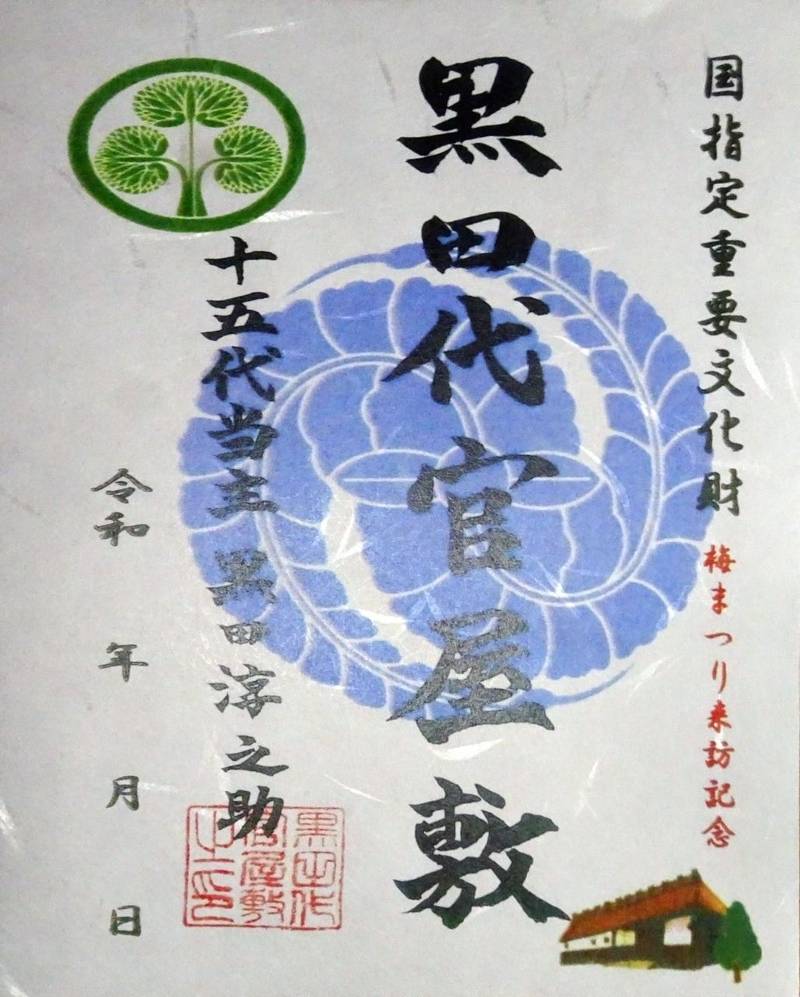 国指定重要文化財 梅まつり来訪記念
黒田代官屋敷
十五代当主 黒田淳之助
令和 年 月 日
黒田代
官屋敷
之印